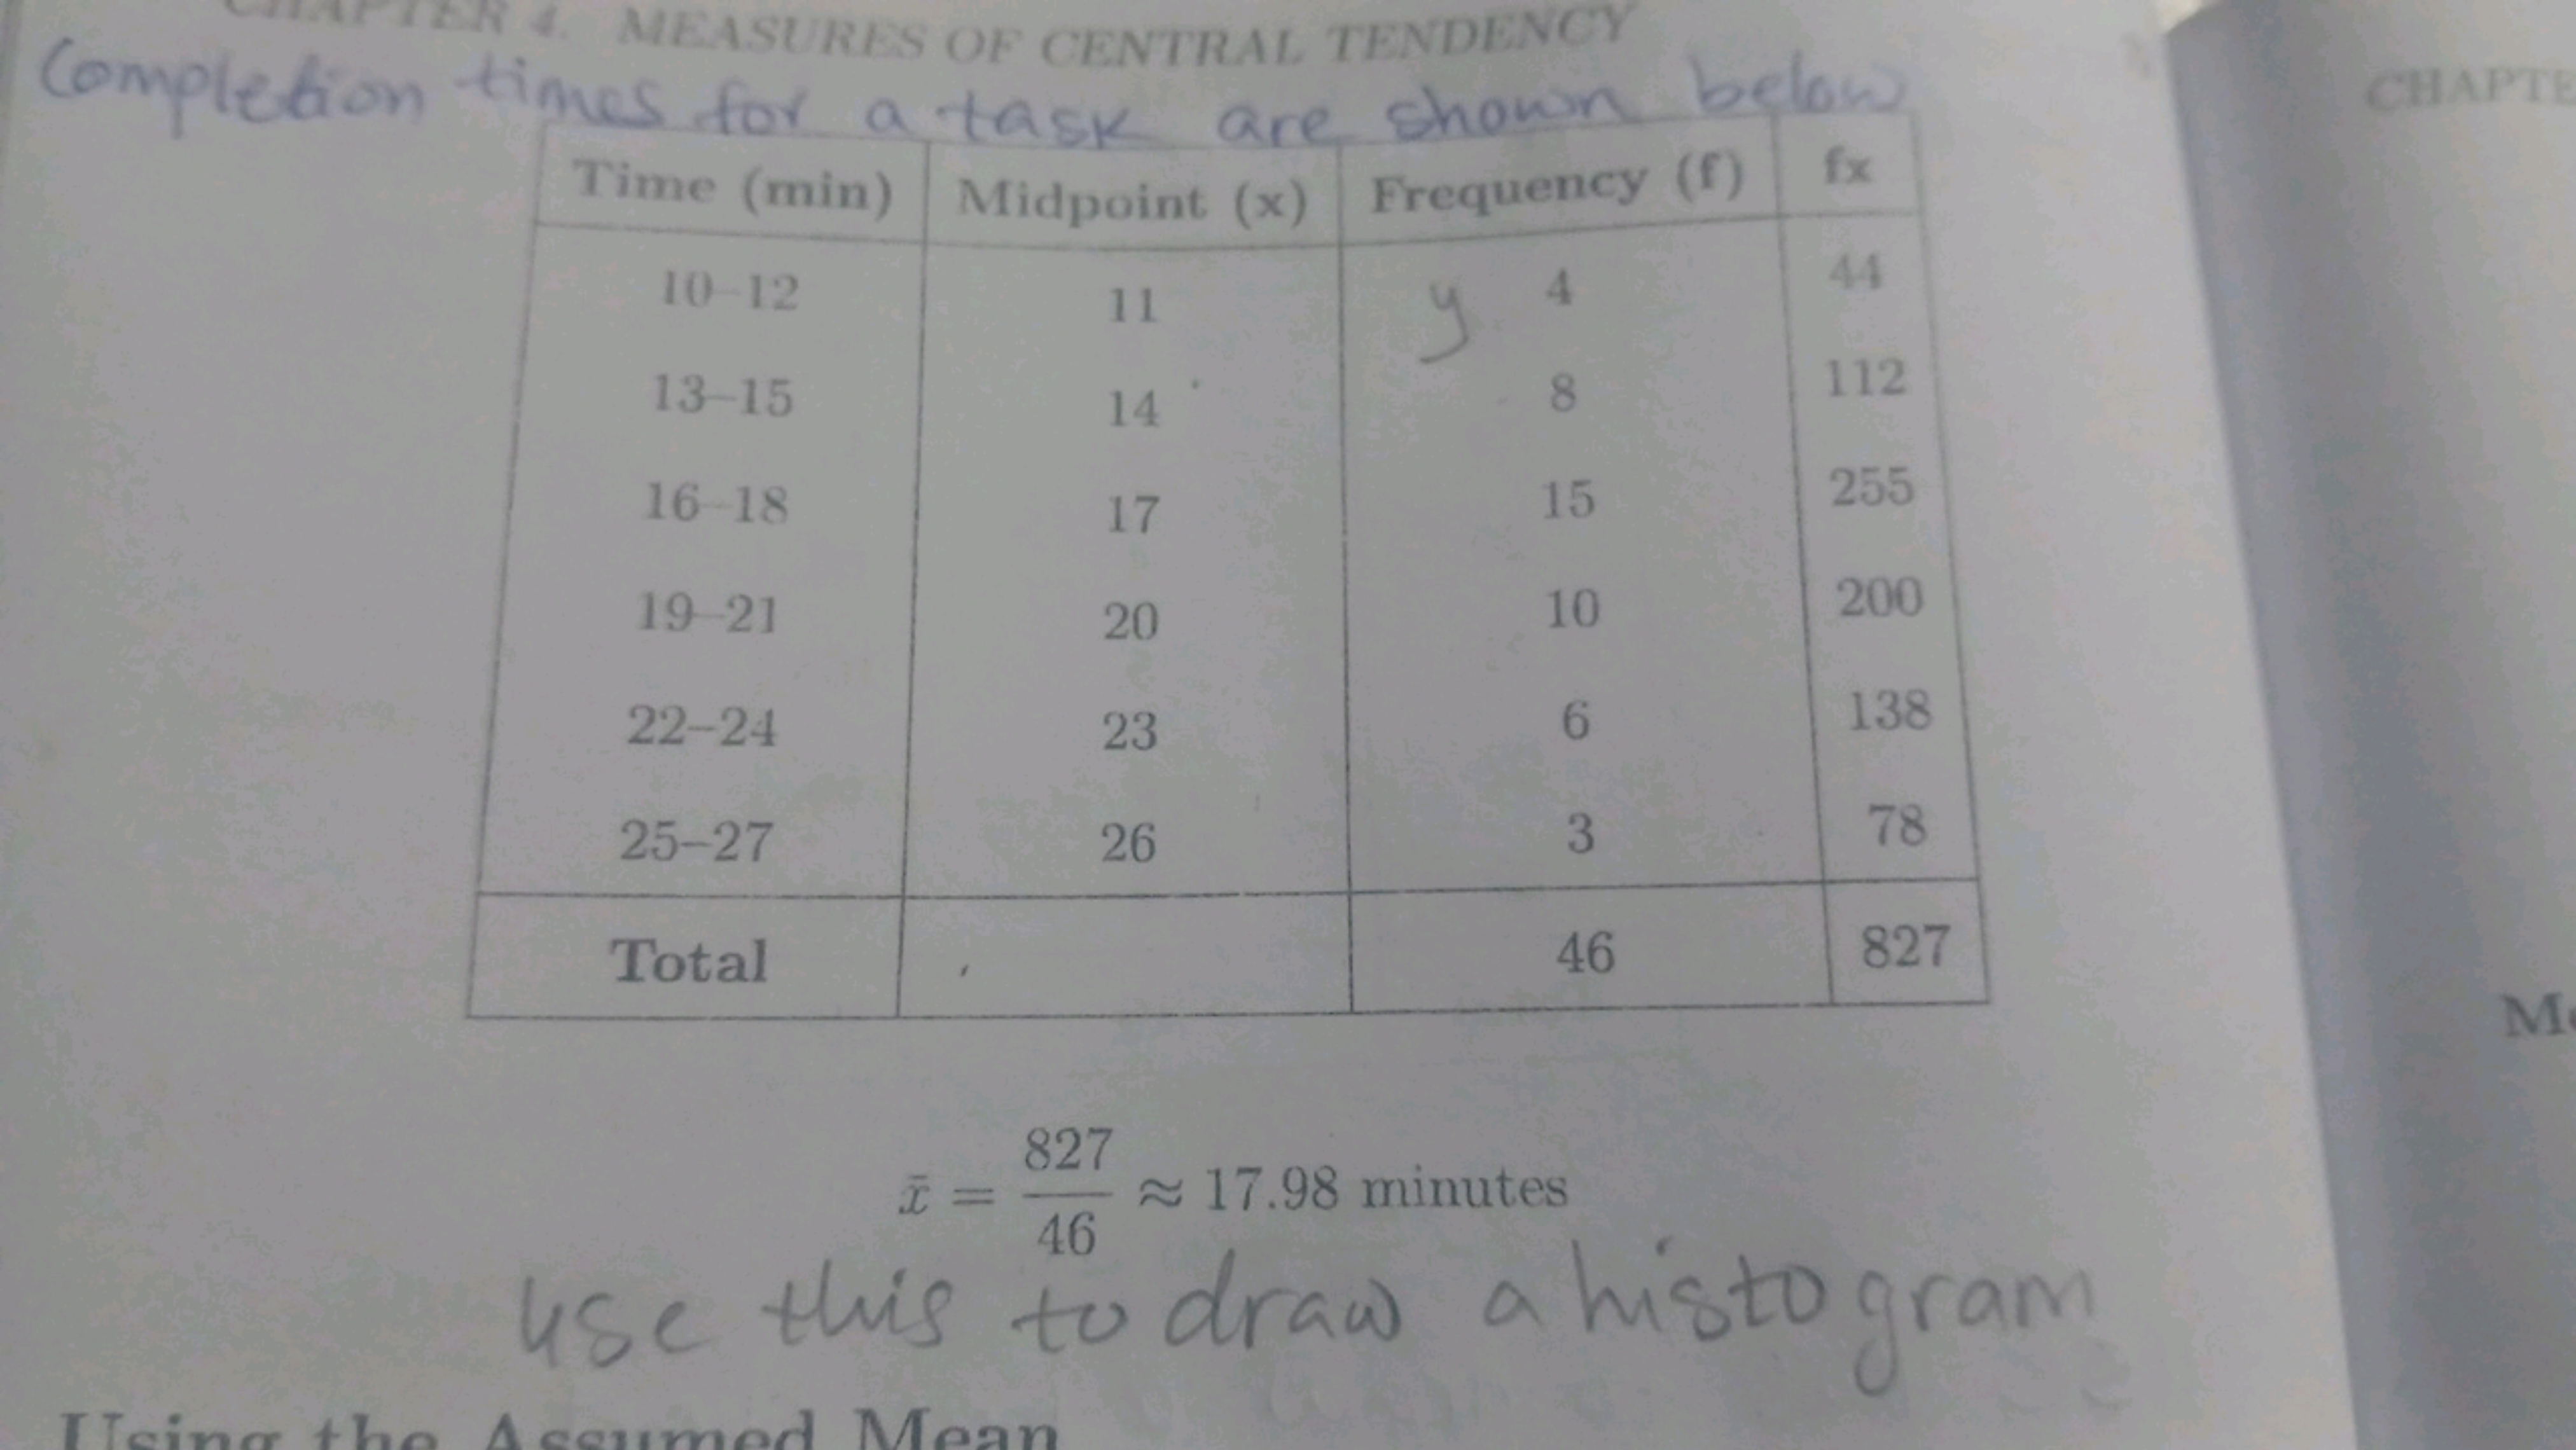 CHAPTER 4. MEASURES OF CENTRAL TENDENCY
CHAPTE
Completion times for a task are shown below
Time (min) Midpoint (x) Frequency (f) fx
10–12 11 y 4 44
13–15 14 8 112
16–18 17 15 255
19–21 20 10 200
22–24 23 6 138
25–27 26 3 78
Total 46 827
x̄ = 827/46 ≈ 17.98 minutes
use this to draw a histogram
Using the Assumed Mean